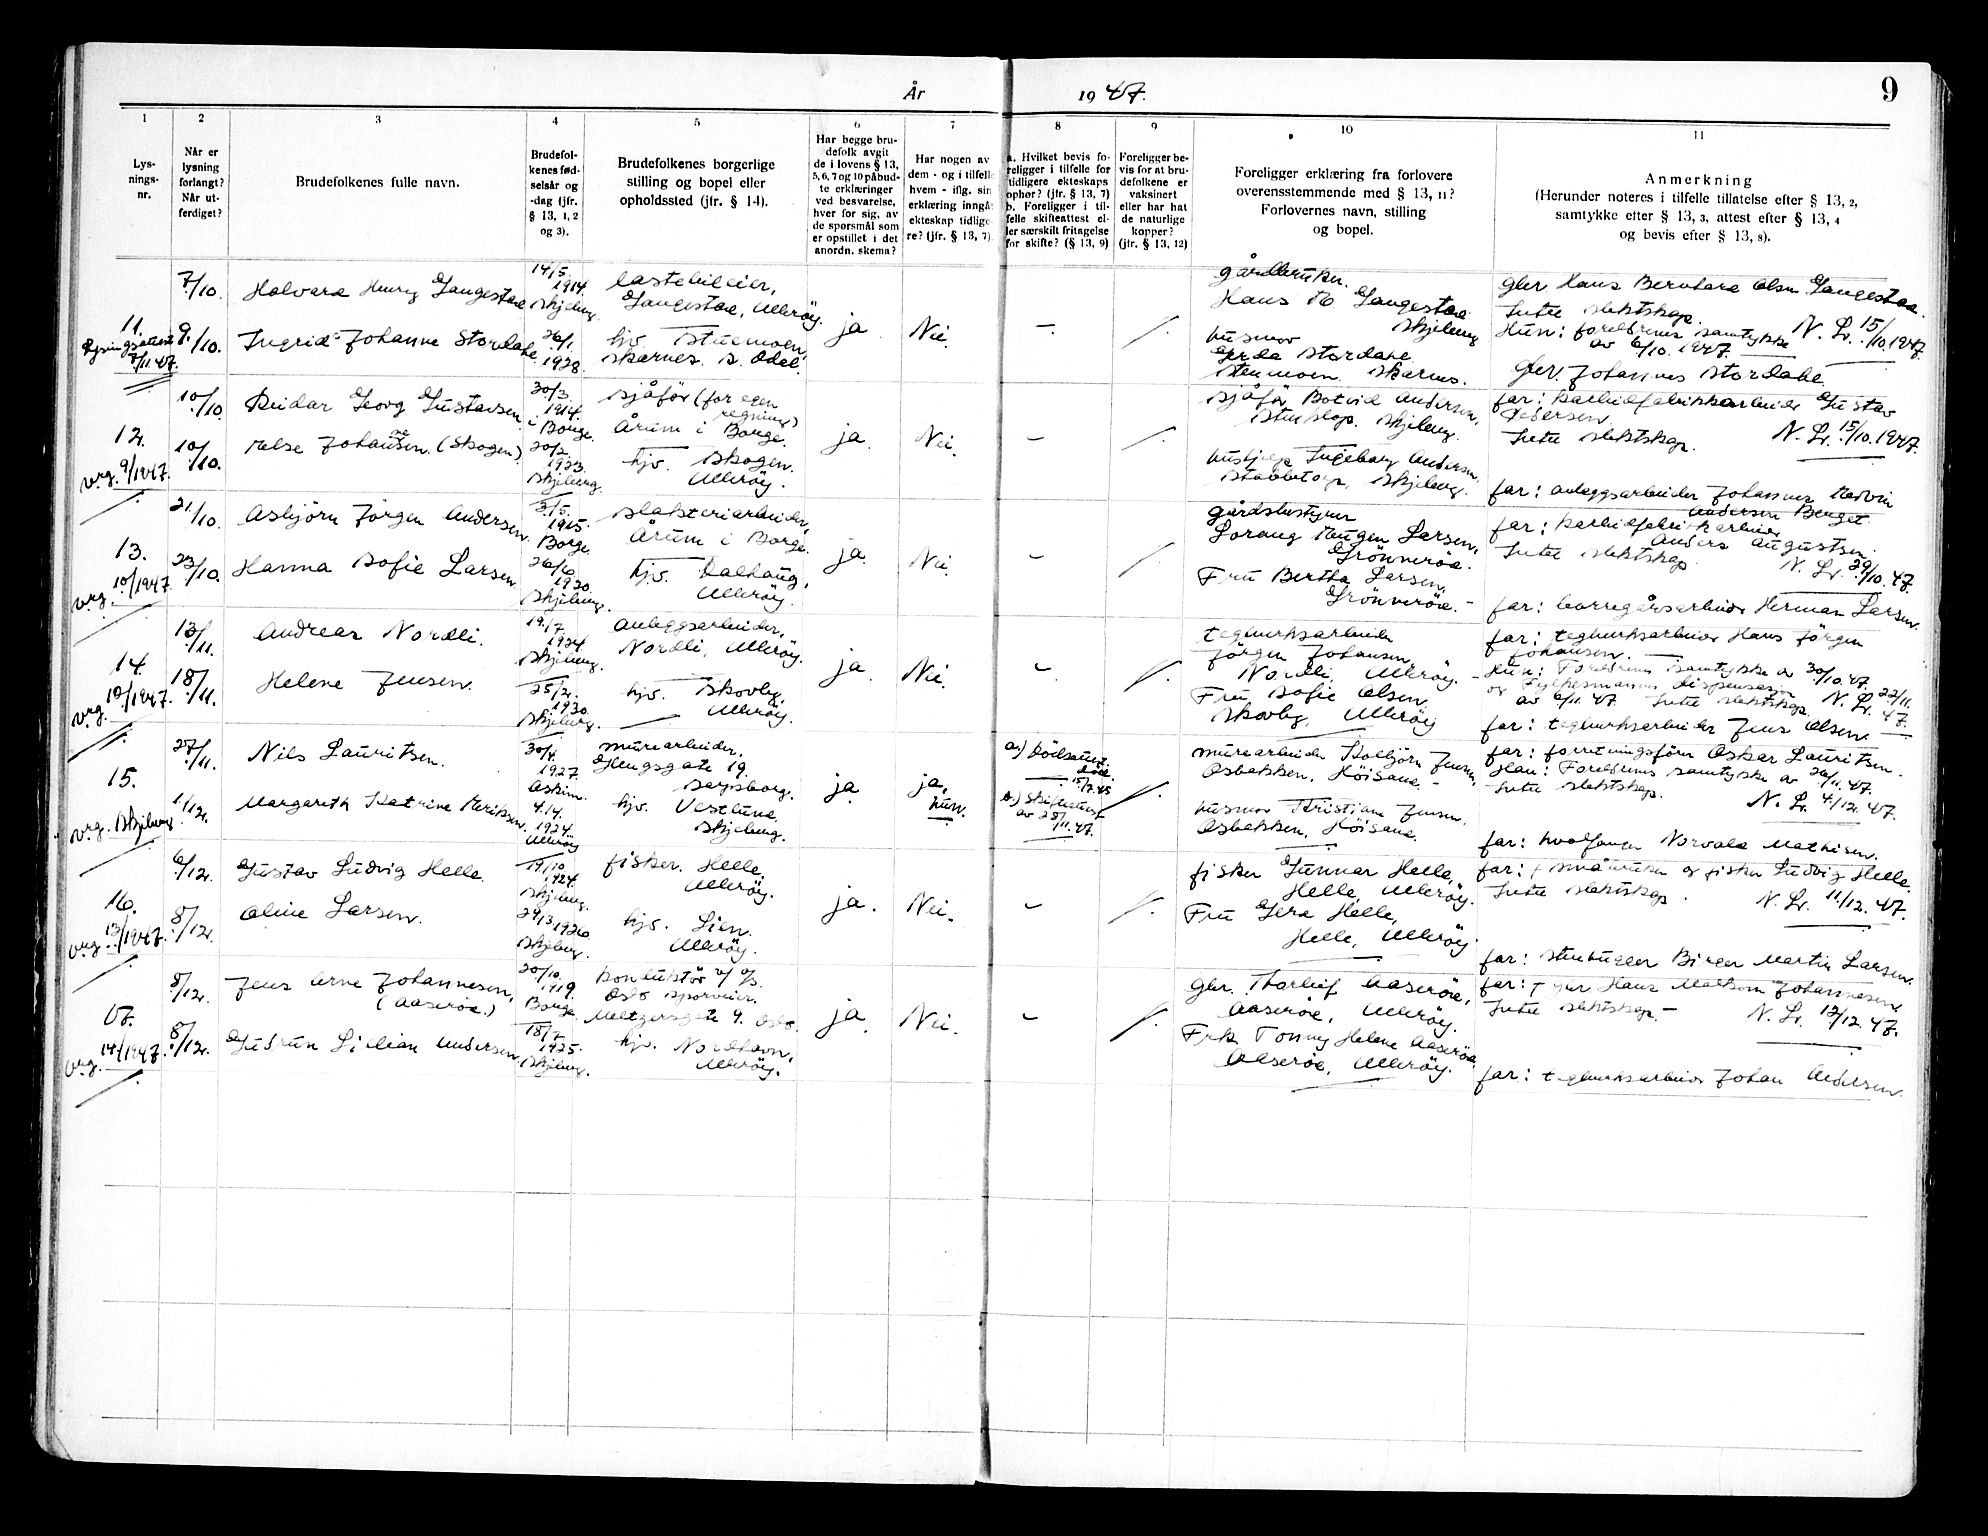 År 1947. 9
1 2 3 4 5 6 7 8 9 10 11
Lys-
nings-
nr.
Når er
lysning
forlangt?
Når ut-
ferdiget?
Brudefolkenes fulle navn.
Brudefol-
kenes fød-
selsår og
-dag (jfr.
§ 13, 1, 2
og 3).
Brudefolkenes borgerlige
stilling og bopel eller
opholdssted (jfr. § 14).
Har begge bru-
defolk avgit
de i lovens § 13,
5, 6, 7 og 10 påbud-
te erklæringer
ved besvarelse,
hver for sig, av
de spørsmål som
er opstillet i det
anordn. skema?
Har nogen av
dem - og i tilfelle
hvem - iflg. sin
erklæring inngåt
ekteskap tidlige-
re? (jfr. § 13, 7)
a. Hvilket bevis fo-
religger i tilfelle for
tidligere ekteskaps
ophør? (jfr. § 13, 7)
b. Foreligger i til-
felle skifteattest el-
ler særskilt fritagelse
for skifte? (§ 13, 9)
Foreligger be-
vis for at bru-
defolkene er
vaksinert
eller har hat
de naturlige
kopper?
(jfr. § 13, 12)
Foreligger erklæring fra forlovere
overensstemmende med § 13, 11?
Forlovernes navn, stilling
og bopel.
Anmerkning
(Herunder noteres i tilfelle tillatelse efter § 13, 2,
samtykke efter § 13, 3, attest efter § 13, 4
og bevis efter § 13, 8).
11.
Lysningsattest
7/11 47.
7/10.
9/10.
Halvard Henry Gangestad
Ingrid Johanne Stordahl
14/5.
1914.
Skjeberg.
26/1.
1928.
lastebileier,
Gangestad, Ullerøy.
hjv. Stuemoen,
Skarnes. S. Odal.
ja
Nei.
–
/.
gårdbruker.
Hans Gangestad
Skjeberg
husmor
Stordahl
Skarnes.
gbr. Hans Bernhard Olsen Gangestad.
Intet slektskap.
N. L. 15/10.1947.
Hun: foreldrenes samtykke
av 6/10. 1947.
gbr. Johannes Stordahl.
12.
vrg. 9/1947.
10/10.
10/10.
Reidar Georg Gustavsen.
Else Johansen. (Skogen).
30/3.
1914.
Borge.
20/2.
1923.
Skjeberg.
sjåfør (for egen
regning)
Årum i Borge.
hjv. Skogen.
Ullerøy.
ja.
Nei.
–
/.
sjåfør Botvid Andersen,
Skjeberg.
Ingeborg Andersen,
Skjeberg.
far: karbidfabrikkarbeider Gustav
Pedersen.
Intet slektskap.
N. L. 15/10.1947.
far: anleggsarbeider Johannes
13.
vrg. 10/1947.
21/10.
23/10.
Asbjørn Jørgen Andersen.
Hanna Sofie Larsen
3/5.
1915.
Borge.
26/6.
1920.
Skjeberg.
slakteriarbeider,
Årum i Borge.
hjv. Dalhaug,
Ullerøy.
ja.
Nei.
–
/.
gårdsbestyrer
Larsen,
Grønnerød.
Fru Bertha Larsen,
Grønnerød.
far: karbidfabrikkarbeider
Anders Augustsen.
Intet slektskap.
N. L. 29/10. 47.
far: Herman Larsen.
14.
vrg. 10/1947.
13/11.
18/11.
Andreas Nordli.
Helene Jensen.
19/7.
1924.
Skjeberg.
25/2.
1930.
Skjeberg.
anleggsarbeider,
Nordli, Ullerøy.
hjv. Skovly,
Ullerøy.
ja.
Nei.
–
/.
teglverksarbeider
Jørgen Johansen,
Nordli, Ullerøy.
Fru Sofie Olsen,
Skovly, Ullerøy
far: teglverksarbeider Hans Jørgen
Johansen.
Hun: Foreldrenes samtykke av 30/10. 47.
og Fylkesmannens dispensasjon
av 6/11 47. Intet slektskap.
N. L. 22/11. 47.
far: teglverksarbeider Jens Olsen.
15.
vrg. Skjeberg
27/11.
1/12.
Nils Lauritsen.
Margareth Katrine Eriksen.
30/4.
1927.
Askim.
4.14.
1924.
Ullerøy
murearbeider.
19.
Sarpsborg.
hjv. Vestlund,
Skjeberg.
ja
ja,
hun.
a.) Dødsattest.
b.) Skifteattest
av 28/11. 47.
/.
murearbeider Jensen,
Høisand.
husmor Kristiane Jensen,
Høisand.
far: forretningsfører Oskar Lauritsen.
Han: Foreldrenes samtykke av 26/11. 47.
Intet slektskap.
N. L. 4/12. 47.
far: hvalfanger Norvald Mathisen.
16.
vrg. 13/1947.
6/12.
8/12.
Gustav Ludvig Helle.
Oline Larsen.
19/10.
1924.
Skjeberg.
29/3 1926
Skjeberg.
fisker. Helle,
Ullerøy.
hjv. Lien.
Ullerøy.
ja.
Nei.
–
/.
fisker Gunnar Helle,
Helle, Ullerøy.
Fru Gerd Helle,
Helle, Ullerøy.
far: † småbruker og fisker Ludvig Helle.
Intet slektskap.
N. L. 11/12. 47.
far: stenhugger Birger Martin Larsen.
17.
vrg. 14/1947.
8/12.
8/12.
Jens Arne Johannesen,
(Aaserød.)
Gudrun Lillian Andersen.
20/10.
1919.
Borge.
18/7.
1925.
Skjeberg.
konduktør v/ A/S.
Oslo sporveier.
Meltzersgate 4. Oslo.
hjv. Nordhavn,
Ullerøy.
ja.
Nei.
–
/.
gbr. Thorleif Aaserød,
Aaserød, Ullerøy.
Frk Tonny Helene Aaserød
Aaserød, Ullerøy.
far: † gbr Hans Johannesen
Intet slektskap.
N. L. 12/12. 47.
far: teglverksarbeider Johan Andersen.